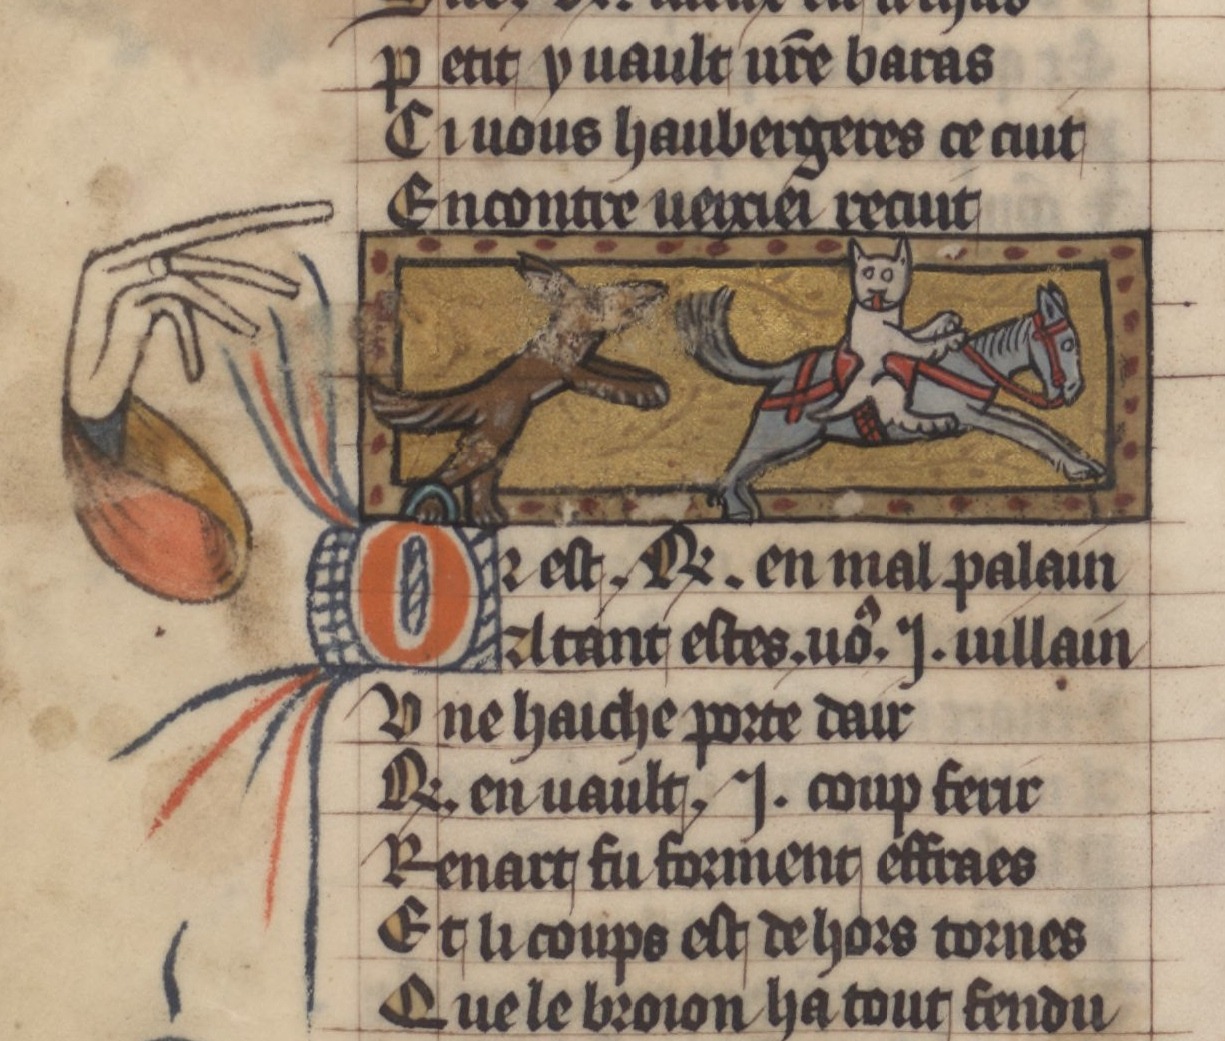 Petit y vault vr̄e baras
Ci vous haubergeres ce cuit
Encontre reciut
Or est .R. en mal pelain
Atant estes vo9 .J. uillain
Une haiche porte dair
R. en vault .J. coup ferir
Renart fu forment effraes
Et li coups est dehors tornes
Que le broion ha tout fendu